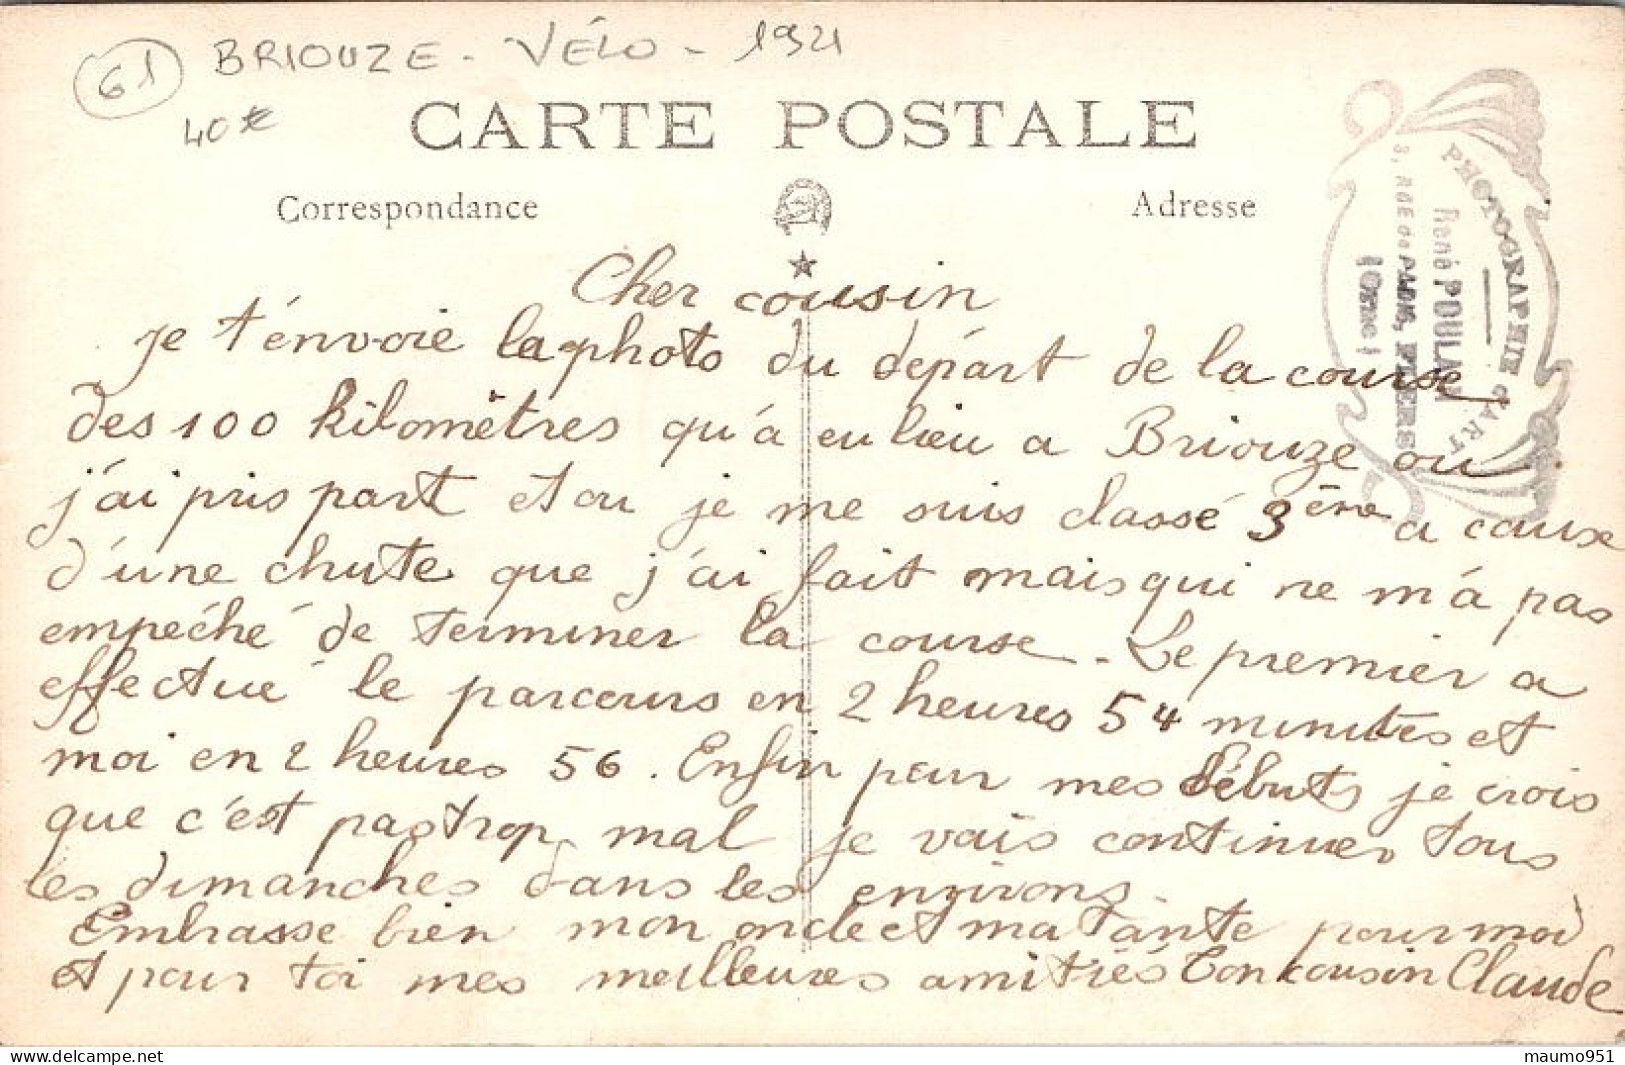 61 BRIOUZE - VÉLO - 1921
40€
CARTE POSTALE
Correspondance
Adresse
PHOTOGRAPHIE d'ART
René POULAIN
3, RUE de PARIS, FLERS
(Orne)
Cher cousin
je t'énvoie la photo du départ de la course
des 100 kilomètres qu'á eu lieu a Briouze ou
j'ai pris part et ou je me suis classé 3ème a cause
d'une chute que j'ai fait mais qui ne m'á pas
empéché de terminer la course - Le premier a
effectué le parcours en 2 heures 54 minutes et
moi en 2 heures 56. Enfin pour mes débuts je crois
que c'est pas trop mal je vais continuer tous
les dimanches dans les environs
Embrasse bien mon oncle et ma tante pour moi
et pour toi mes meilleures amitiés Ton cousin Claude
maumo951